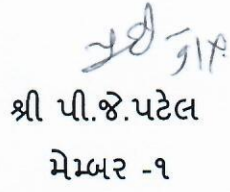 શ્રી પી.જે.પટેલ
મેમ્બર -૧